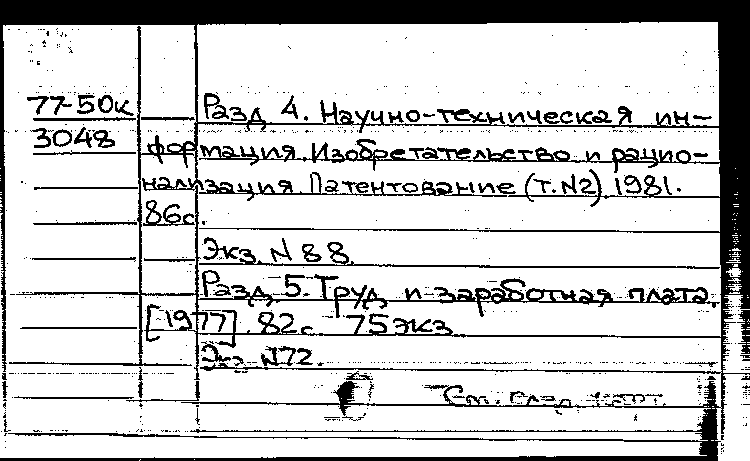 77-50к Разд. 4. Научно-техническая ин-
3048 формация. Изобретательство и рацио-
нализация. Патентование (т. N2). 1981.
86с.
Экз. N 88.
Разд. 5. Труд и заработная плата.
[1977]. 82с. 75экз.
Экз. N72.
См. след. карт.